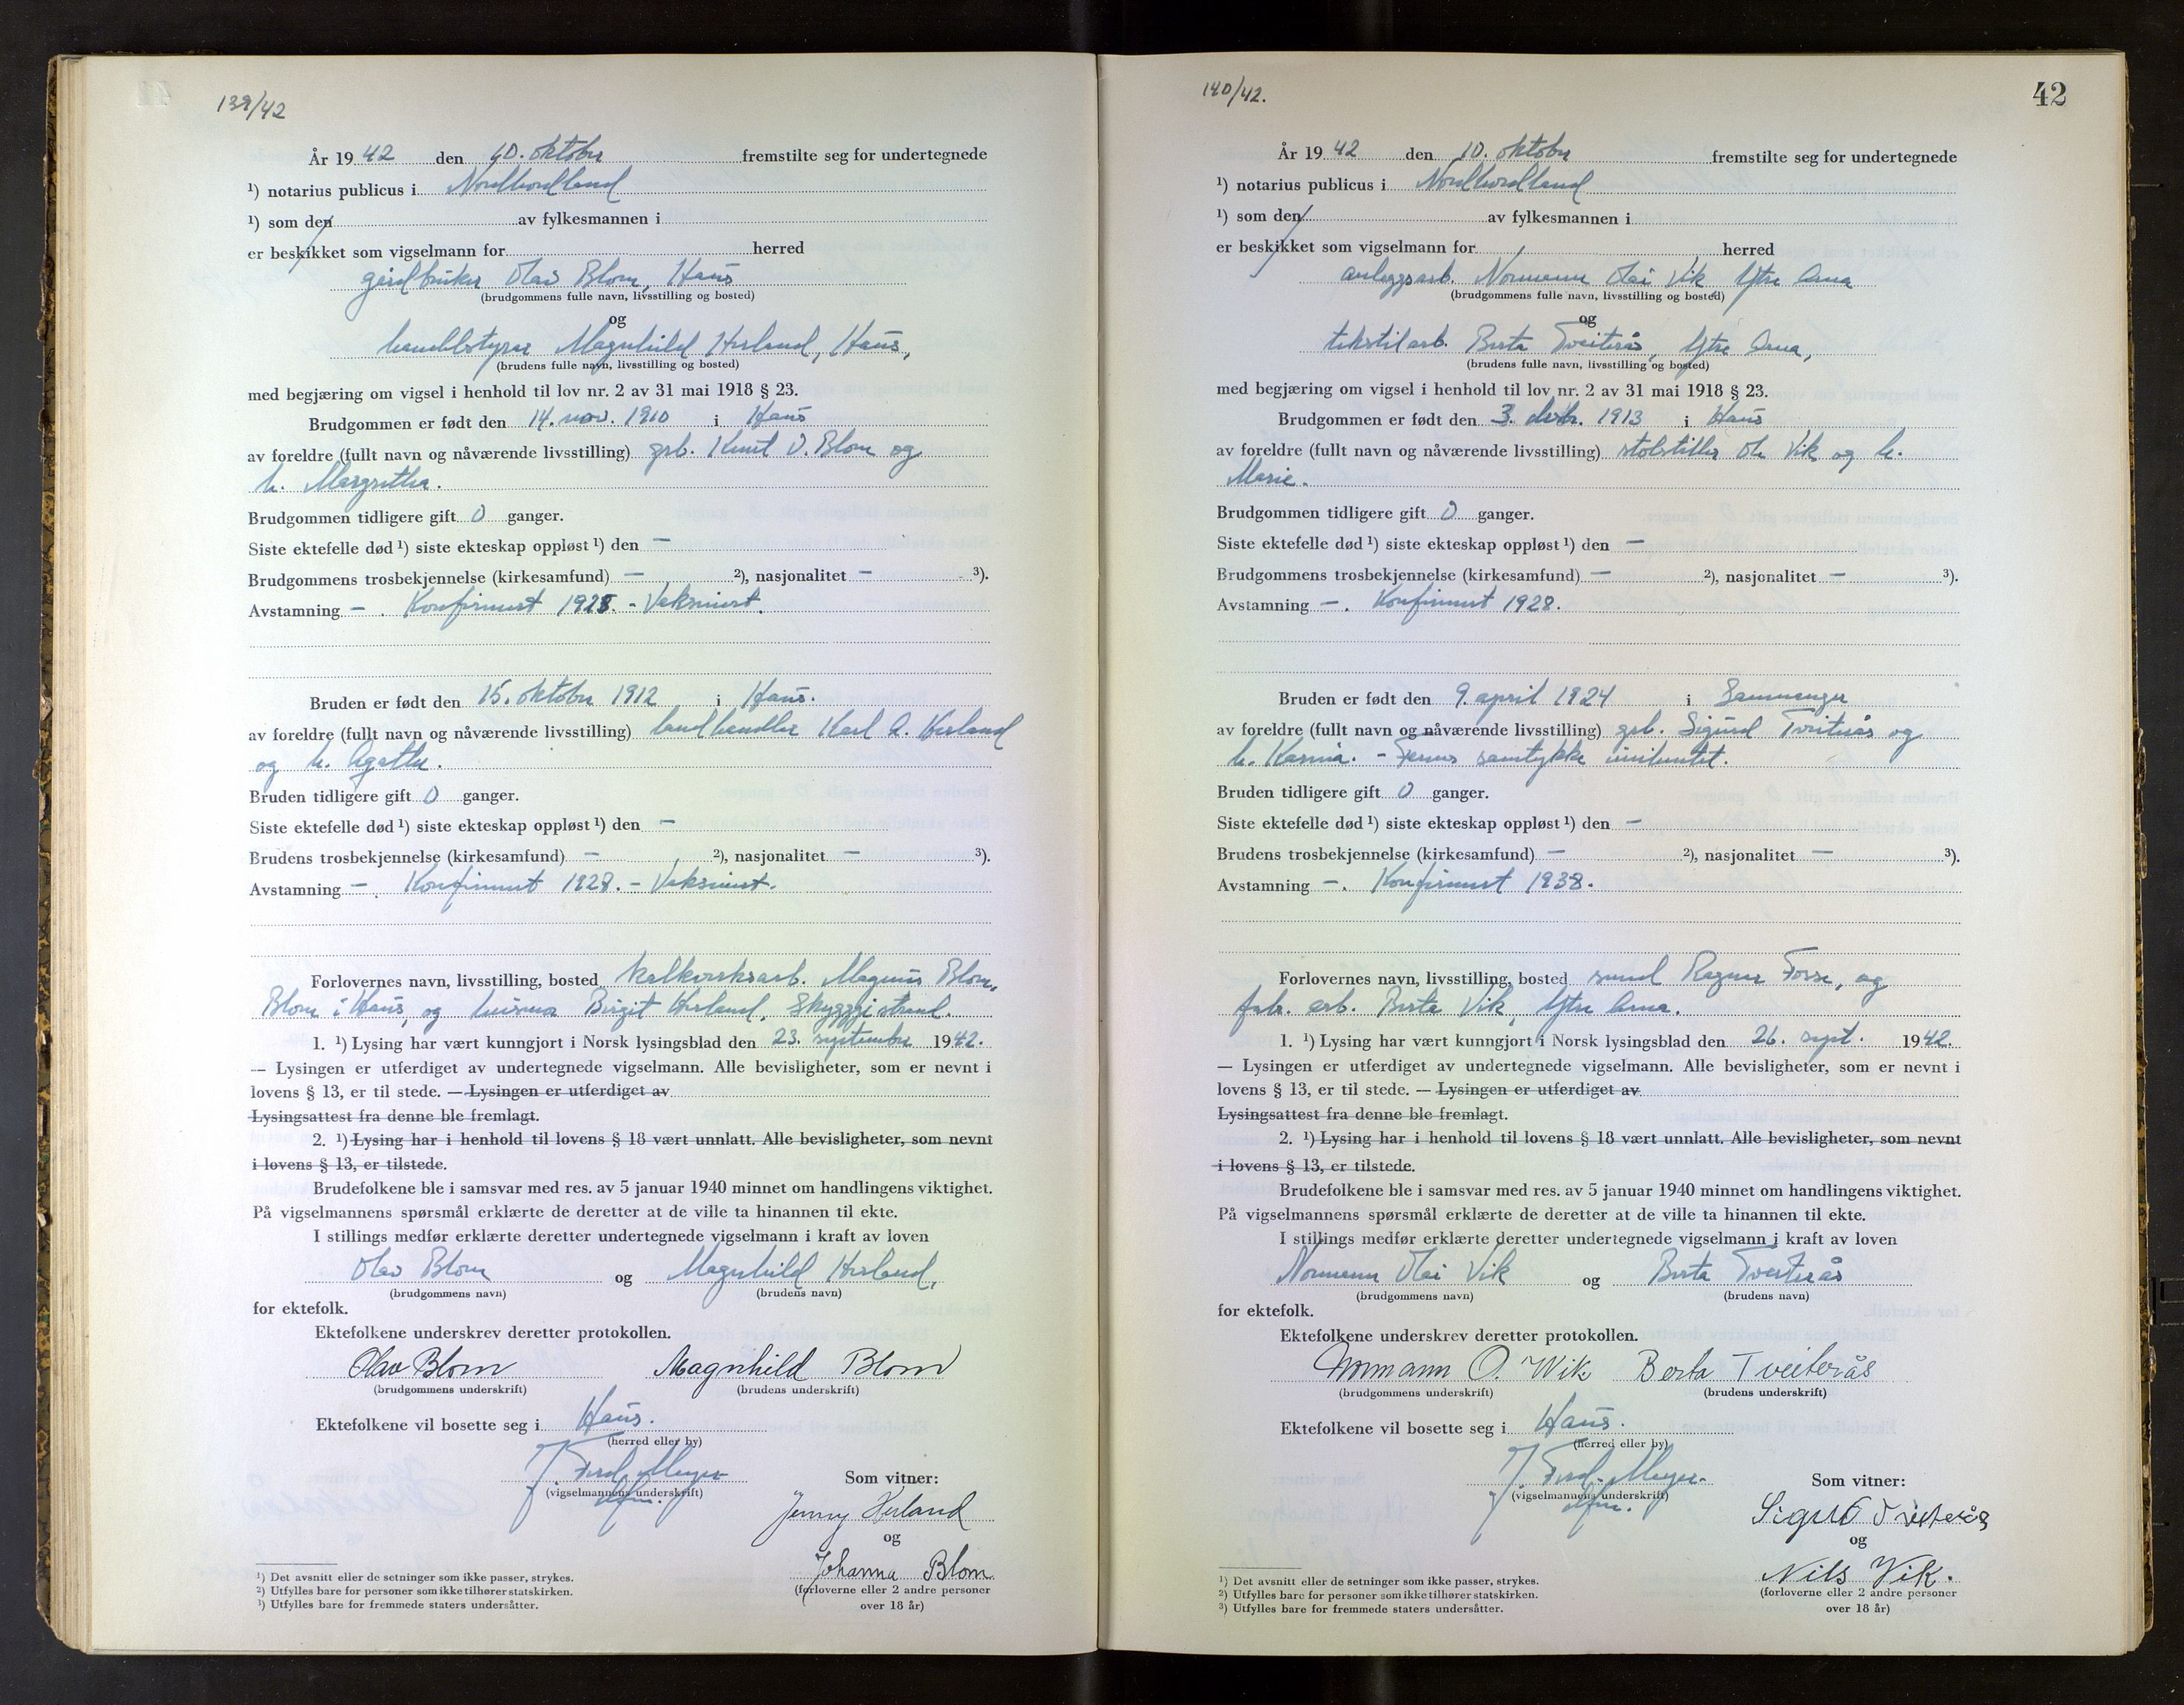 139/42
År 19 42 den 10. oktober fremstilte seg for undertegnede
¹) notarius publicus i Nordhordland
¹) som den av fylkesmannen i
er beskikket som vigselmann for herred
gårdbruker Olav Blom, Haus
(brudgommens fulle navn, livsstilling og bosted)
og
handelsstyrer Magnhild Herland, Haus,
(brudens fulle navn, livsstilling og bosted)
med begjæring om vigsel i henhold til lov nr. 2 av 31 mai 1918 § 23.
Brudgommen er født den 14. nov. 1910 i Haus
av foreldre (fullt navn og nåværende livsstilling) grb. Knut O. Blom og
h. Margretha.
Brudgommen tidligere gift 0 ganger.
Siste ektefelle død ¹) siste ekteskap oppløst ¹) den —
Brudgommens trosbekjennelse (kirkesamfund) — ²), nasjonalitet — ³).
Avstamning — . Konfirmert 1925. - Vaksinert.
Bruden er født den 15. oktober 1912 i Haus.
av foreldre (fullt navn og nåværende livsstilling) landhandler Karl A. Herland
og h. Agathe.
Bruden tidligere gift 0 ganger.
Siste ektefelle død ¹) siste ekteskap oppløst ¹) den —
Brudens trosbekjennelse (kirkesamfund) — ²), nasjonalitet — ³).
Avstamning — . Konfirmert 1928. - Vaksinert.
Forlovernes navn, livsstilling, bosted kalkverksarb. Magnus Blom,
Blom i Haus, og husmor Birgit Herland, Skyggjestrand.
1. ¹) Lysing har vært kunngjort i Norsk lysingsblad den 23. september 1942.
— Lysingen er utferdiget av undertegnede vigselmann. Alle bevisligheter, som er nevnt i
lovens § 13, er til stede. — Lysingen er utferdiget av
Lysingsattest fra denne ble fremlagt.
2. ¹) Lysing har i henhold til lovens § 18 vært unnlatt. Alle bevisligheter, som nevnt
i lovens § 13, er tilstede.
Brudefolkene ble i samsvar med res. av 5 januar 1940 minnet om handlingens viktighet.
På vigselmannens spørsmål erklærte de deretter at de ville ta hinannen til ekte.
I stillings medfør erklærte deretter undertegnede vigselmann i kraft av loven
Olav Blom og Magnhild Herland,
(brudgommens navn) (brudens navn)
for ektefolk.
Ektefolkene underskrev deretter protokollen.
Olav Blom Magnhild Blom
(brudgommens underskrift) (brudens underskrift)
Ektefolkene vil bosette seg i Haus.
(herred eller by)
J. Ferd. Meyer
(vigselmannens underskrift)
Som vitner:
Jenny Herland
og
Johanna Blom
(forloverne eller 2 andre personer
over 18 år)
¹) Det avsnitt eller de setninger som ikke passer, strykes.
²) Utfylles bare for personer som ikke tilhører statskirken.
³) Utfylles bare for fremmede staters undersåtter.
140/42.
42
År 19 42 den 10. oktober fremstilte seg for undertegnede
¹) notarius publicus i Nordhordland
¹) som den av fylkesmannen i
er beskikket som vigselmann for herred
anleggsarb. Normann Olai Vik Ytre Arna
(brudgommens fulle navn, livsstilling og bosted)
og
tekstilarb. Berta Tveiterås, Ytre Arna,
(brudens fulle navn, livsstilling og bosted)
med begjæring om vigsel i henhold til lov nr. 2 av 31 mai 1918 § 23.
Brudgommen er født den 3. 1913 i Haus
av foreldre (fullt navn og nåværende livsstilling) stolstiller Ole Vik og h.
Marie.
Brudgommen tidligere gift 0 ganger.
Siste ektefelle død ¹) siste ekteskap oppløst ¹) den —
Brudgommens trosbekjennelse (kirkesamfund) — ²), nasjonalitet — ³).
Avstamning — . Konfirmert 1928.
Bruden er født den 9. april 1924 i Samnanger
av foreldre (fullt navn og nåværende livsstilling) grb. Sigurd Tveiterås og
h. Karina. - Farens samtykke innhentet.
Bruden tidligere gift 0 ganger.
Siste ektefelle død ¹) siste ekteskap oppløst ¹) den —
Brudens trosbekjennelse (kirkesamfund) — ²), nasjonalitet — ³).
Avstamning — . Konfirmert 1938.
Forlovernes navn, livsstilling, bosted smed Ragnar Fosse, og
fabr. arb. Berta Vik, Ytre Arna.
1. ¹) Lysing har vært kunngjort i Norsk lysingsblad den 26. sept. 1942.
— Lysingen er utferdiget av undertegnede vigselmann. Alle bevisligheter, som er nevnt i
lovens § 13, er til stede. — Lysingen er utferdiget av
Lysingsattest fra denne ble fremlagt.
2. ¹) Lysing har i henhold til lovens § 18 vært unnlatt. Alle bevisligheter, som nevnt
i lovens § 13, er tilstede.
Brudefolkene ble i samsvar med res. av 5 januar 1940 minnet om handlingens viktighet.
På vigselmannens spørsmål erklærte de deretter at de ville ta hinannen til ekte.
I stillings medfør erklærte deretter undertegnede vigselmann i kraft av loven
Normann Olai Vik og Berta Tveiterås
(brudgommens navn) (brudens navn)
for ektefolk.
Ektefolkene underskrev deretter protokollen.
Normann O. Wik Berta Tveiterås
(brudgommens underskrift) (brudens underskrift)
Ektefolkene vil bosette seg i Haus.
(herred eller by)
J. Ferd. Meyer
(vigselmannens underskrift)
Som vitner:
Sigurd Tveiterås
og
Nils Vik.
(forloverne eller 2 andre personer
over 18 år)
¹) Det avsnitt eller de setninger som ikke passer, strykes.
²) Utfylles bare for personer som ikke tilhører statskirken.
³) Utfylles bare for fremmede staters undersåtter.